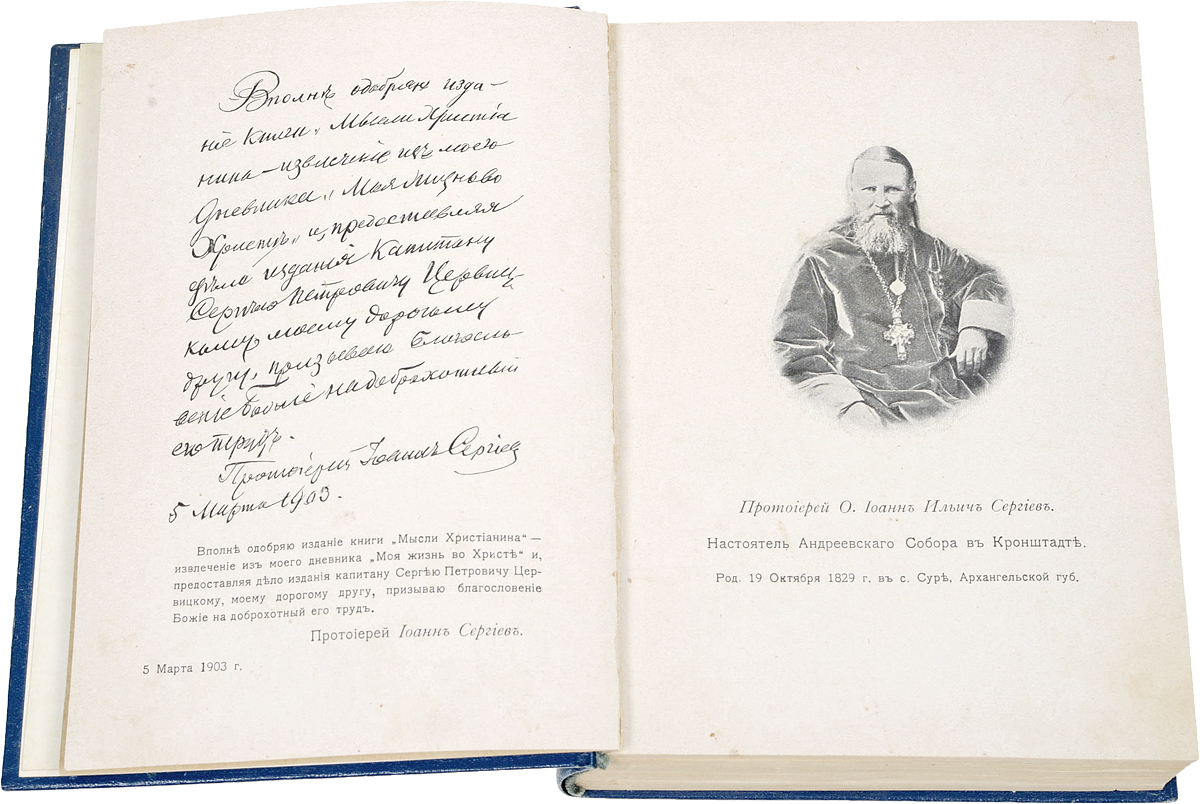 Вполнѣ одобряю изда-
ніе книги „Мысли Христіа
нина — извлеченіе изъ моего
дневника „Моя жизнь во
Христѣ" и, предоставляя
дѣло изданія Капитану
Сергѣю Петровичу Цервиц-
кому моему дорогому
другу, призываю благосло-
веніе Божіе на доброхотный
его трудъ.
Протоіерей Іоаннъ Сергіев
5 Марта 1903.
Вполнѣ одобряю изданіе книги „Мысли Христіанина" —
извлеченіе изъ моего дневника „Моя жизнь во Христѣ" и,
предоставляя дѣло изданія капитану Сергѣю Петровичу Цер-
вицкому, моему дорогому другу, призываю благословеніе
Божіе на доброхотный его трудъ.
Протоіерей Іоаннъ Сергіевъ.
5 Марта 1903 г.
Протоіерей О. Іоаннъ Ильичъ Сергіевъ.
Настоятель Андреевскаго Собора въ Кронштадтѣ.
Род. 19 Октября 1829 г. въ с. Сурѣ, Архангельской губ.